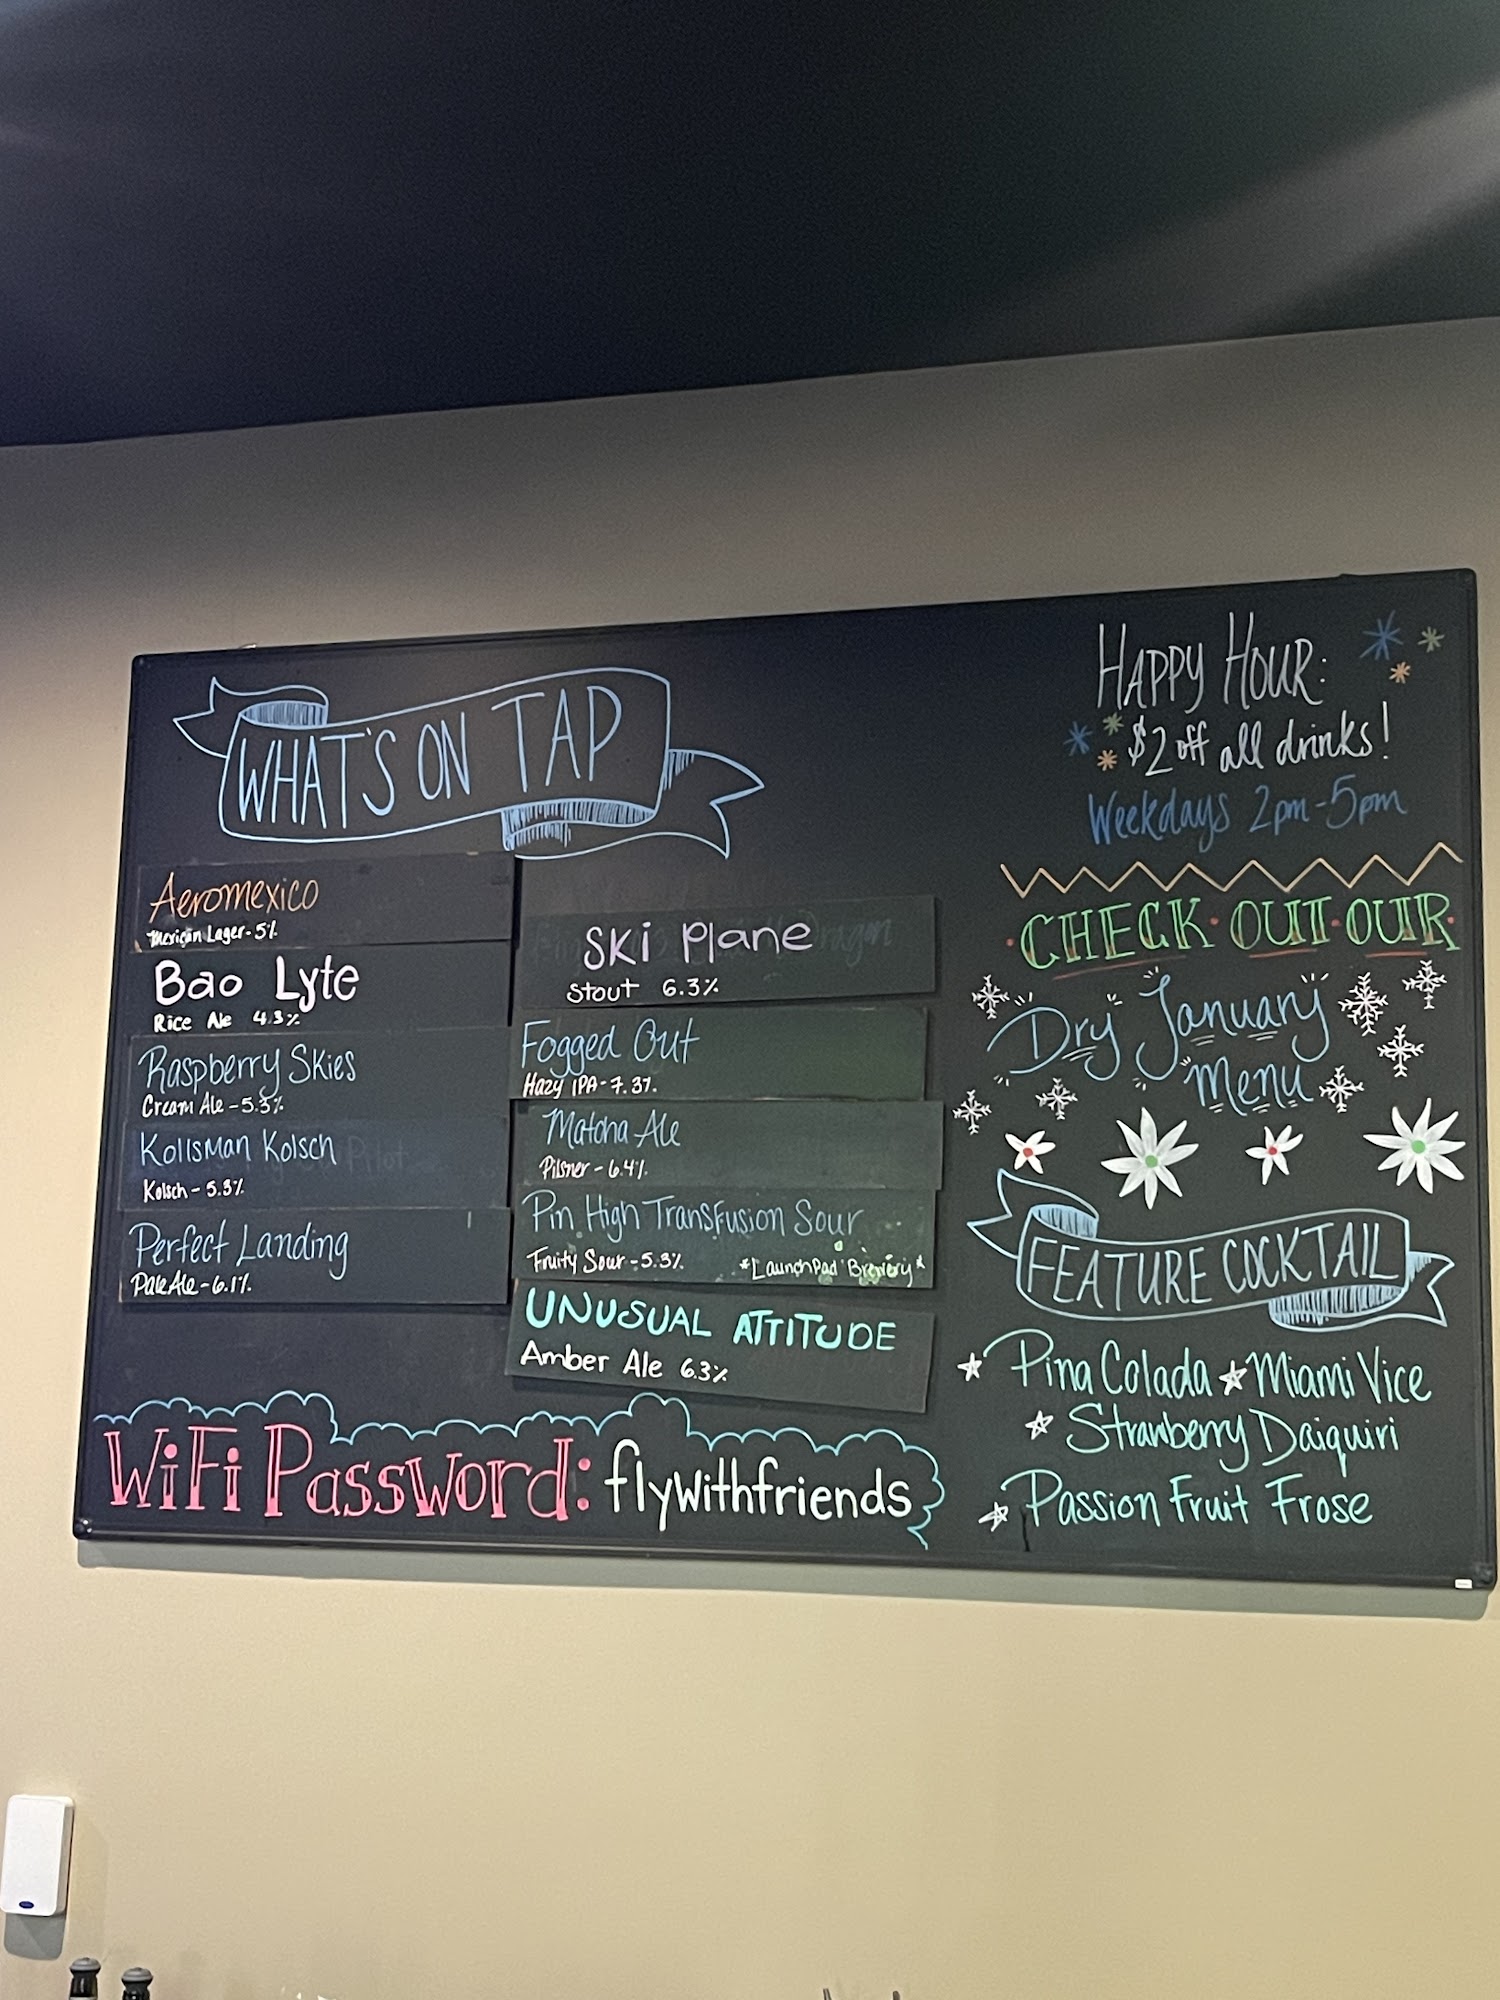 WHAT'S ON TAP
Aeromexico
Mexican Lager - 5%
Bao Lyte
Rice Ale 4.3%
Raspberry Skies
Cream Ale - 5.3%
Kollsman Kolsch
Kolsch - 5.3%
Perfect Landing
Pale Ale - 6.1%
Ski Plane
Stout 6.3%
Fogged Out
Hazy IPA - 7.3%
Matcha Ale
Pilsner - 6.4%
Pin High Transfusion Sour
Fruity Sour - 5.3% *LaunchPad Brewery*
UNUSUAL ATTITUDE
Amber Ale 6.3%
WiFi Password: flywithfriends
HAPPY HOUR:
$2 off all drinks!
Weekdays 2pm-5pm
CHECK · OUT · OUR
Dry January
Menu
FEATURE COCKTAIL
Pina Colada Miami Vice
Strawberry Daiquiri
Passion Fruit Frose